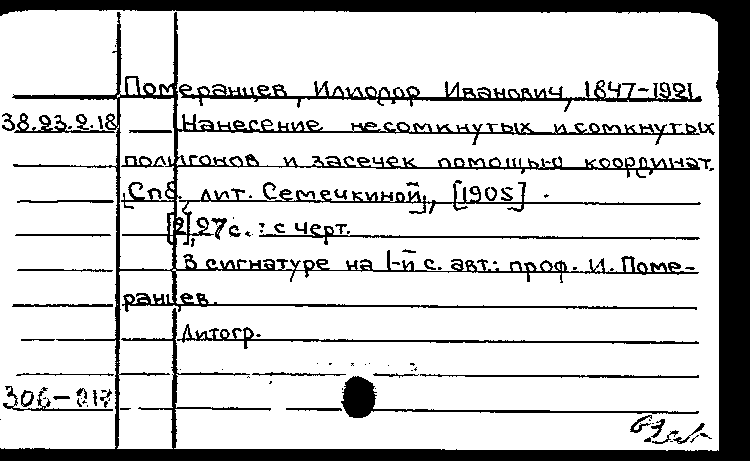 Померанцев, Илиодор Иванович, 1847-1921.
38.23.2.18 Нанесение несомкнутых и сомкнутых
полигонов и засечек помощью координат.
[Спб., лит. Семечкиной], [1905].
[2], 27 с. : с черт.
В сигнатуре на 1-й с. авт.: проф. И. Поме-
ранцев.
Литогр.
306-217